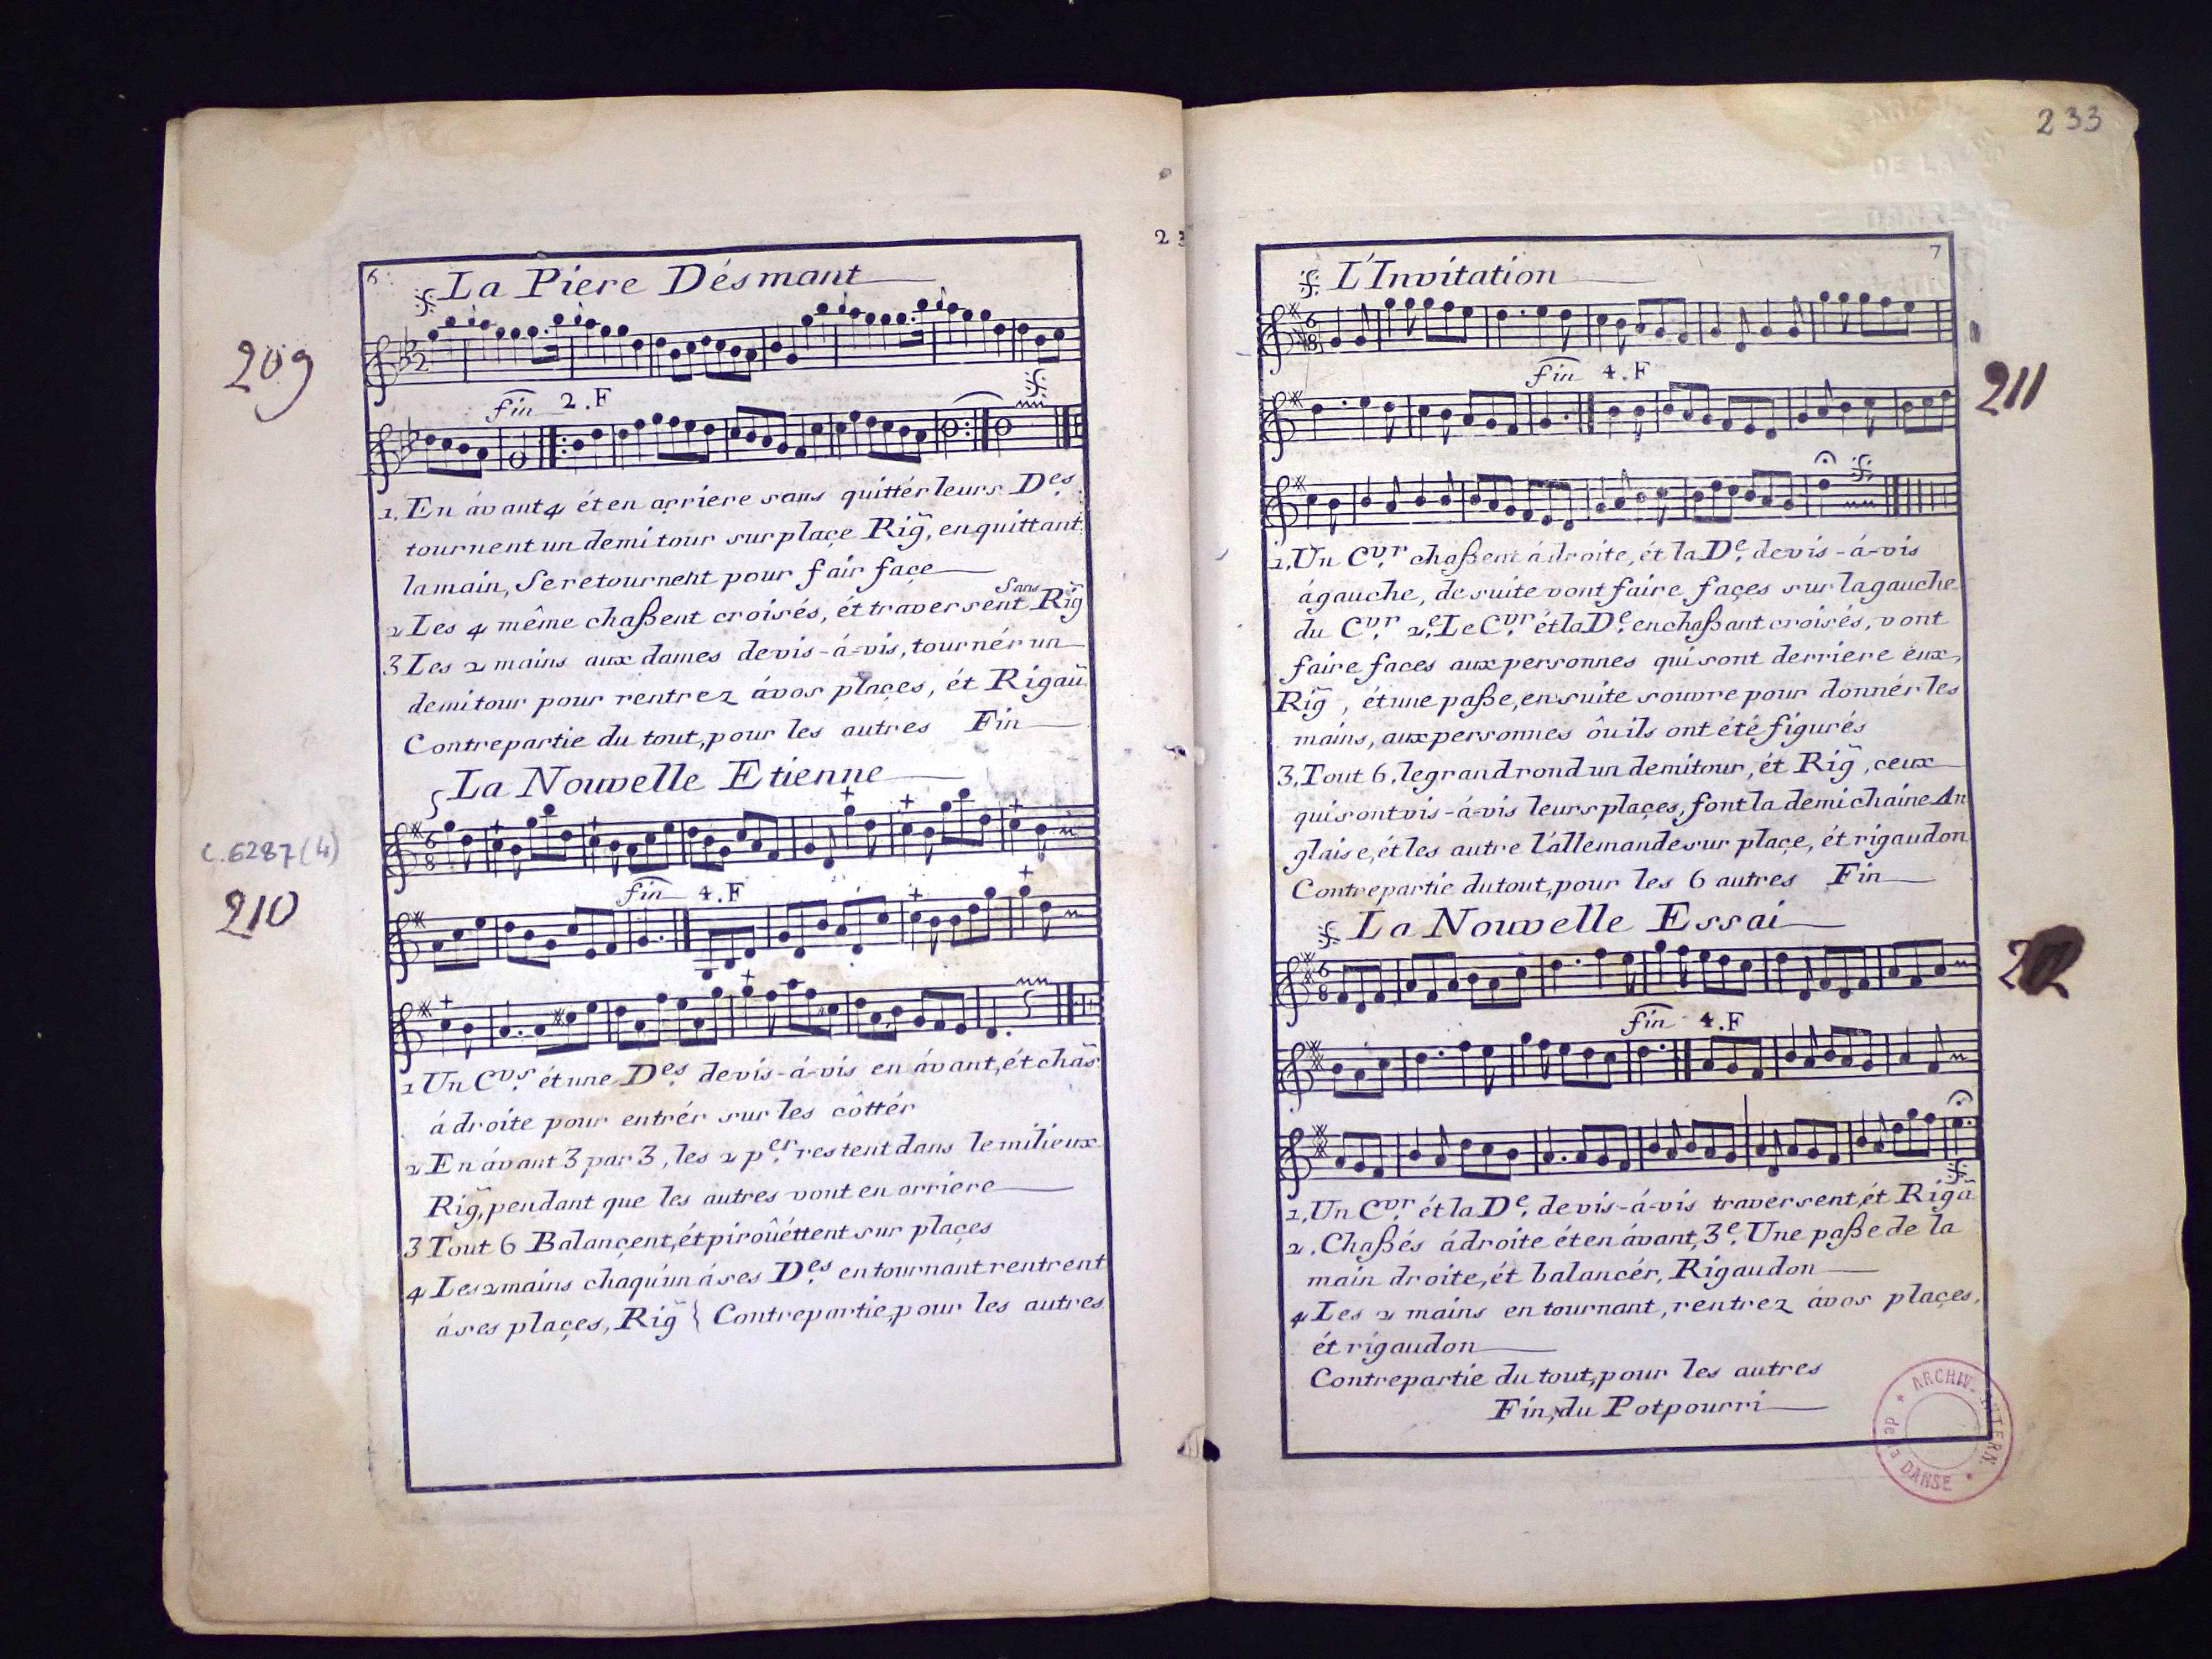 6
La Piere Désmant
209
2
fin 2.F
1. En ávant 4 ét en arriere sans quittér leurs Des.
tournent un demi tour sur plaçe Rig̃, en quittant
la main, Se retournent pour fair façe
Sans
2 Les 4 même chaßent croisés, ét traversent Rig̃
3 Les 2 mains aux dames de vis-á-vis, tournér un
demi tour pour rentrez ávos plaçes, ét Rigaũ
Contrepartie du tout, pour les autres Fin
La Nouvelle Etienne
6
8
C.6287(4)
210
fin 4.F
1 Un Cvs. ét une Des. de vis-á-vis en ávant, ét chas̃
á droite pour entrér sur les côttér
2 En ávant 3 par 3, les 2 per. restent dans le milieux
Rig̃, pendant que les autres vont en arriere
3 Tout 6 Balançent, ét pirôuéttent sur plaçes
4 Les 2 mains cháqu'un á ses Des. en tournant rentrent
á ses plaçes, Rig̃ { Contrepartie, pour les autres
233
7
L'Invitation
6
8
fin 4.F
211
1, Un Cvr. chaßent á droite, ét la De. de vis-á-vis
á gauche, de suite vont faire façes sur la gauche
du Cvr. 2e. Le Cvr. ét la De. en chaßant croisés, vont
faire faces aux personnes qui sont derriere éux,
Rig̃, ét une paße, en suite souvre pour donnér les
mains, aux personnes ôu ils ont été figurés
3, Tout 6, le grand rond un demi tour, ét Rig̃, ceux
qui sont vis-á-vis leurs plaçes, font la demi chaine An
glaise, ét les autre l'állemande sur plaçe, ét rigaudon
Contrepartie du tout, pour les 6 autres Fin
La Nouvelle Essai
6
8
fin 4.F
1, Un Cvr. ét la De. de vis-á-vis traversent, ét Rigã
2. Chaßés á droite ét en ávant, 3e. Une paße de la
main droite, ét balancér, Rigaudon
4 Les 2 mains en tournant, rentrez ávos plaçes,
ét rigaudon
Contrepartie du tout, pour les autres
Fin, du Potpourri
ARCHIV. INTERN. de la DANSE